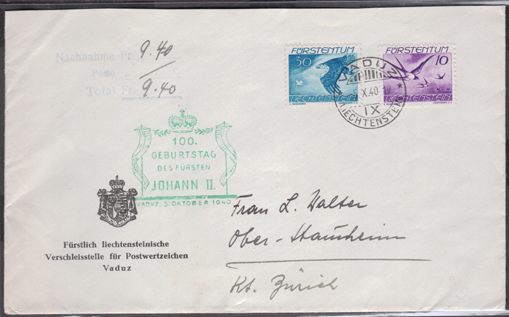 Nachnahme Fr. 9.40
Porto
Total Fr. 9.40
30
FÜRSTENTUM
LIECHTENSTEIN
FÜRSTENTUM
10
LIECHTENSTEIN
VADUZ
X.40
IX
LIECHTENSTEIN
100.
GEBURTSTAG
DES FÜRSTEN
JOHANN II.
VADUZ, 5. OKTOBER 1940
Frau L. Walter
Ober-Stammheim
Kt. Zürich
Fürstlich liechtensteinische
Verschleissstelle für Postwertzeichen
Vaduz